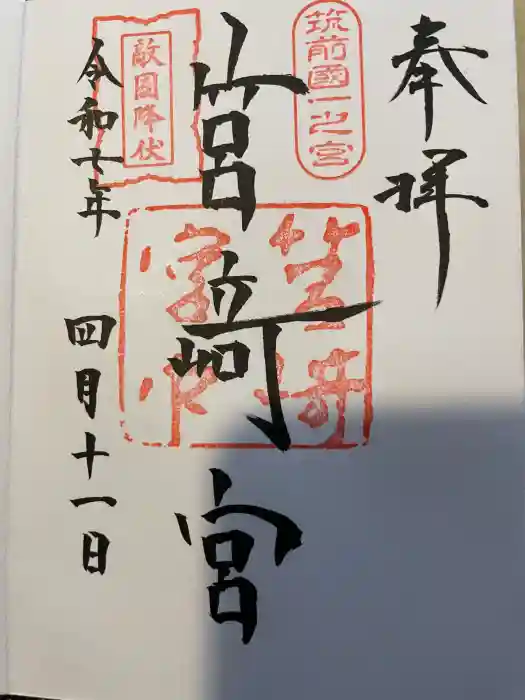 奉拝
筑前國一之宮
筥﨑宮
敵國降伏
令和七年 四月十一日